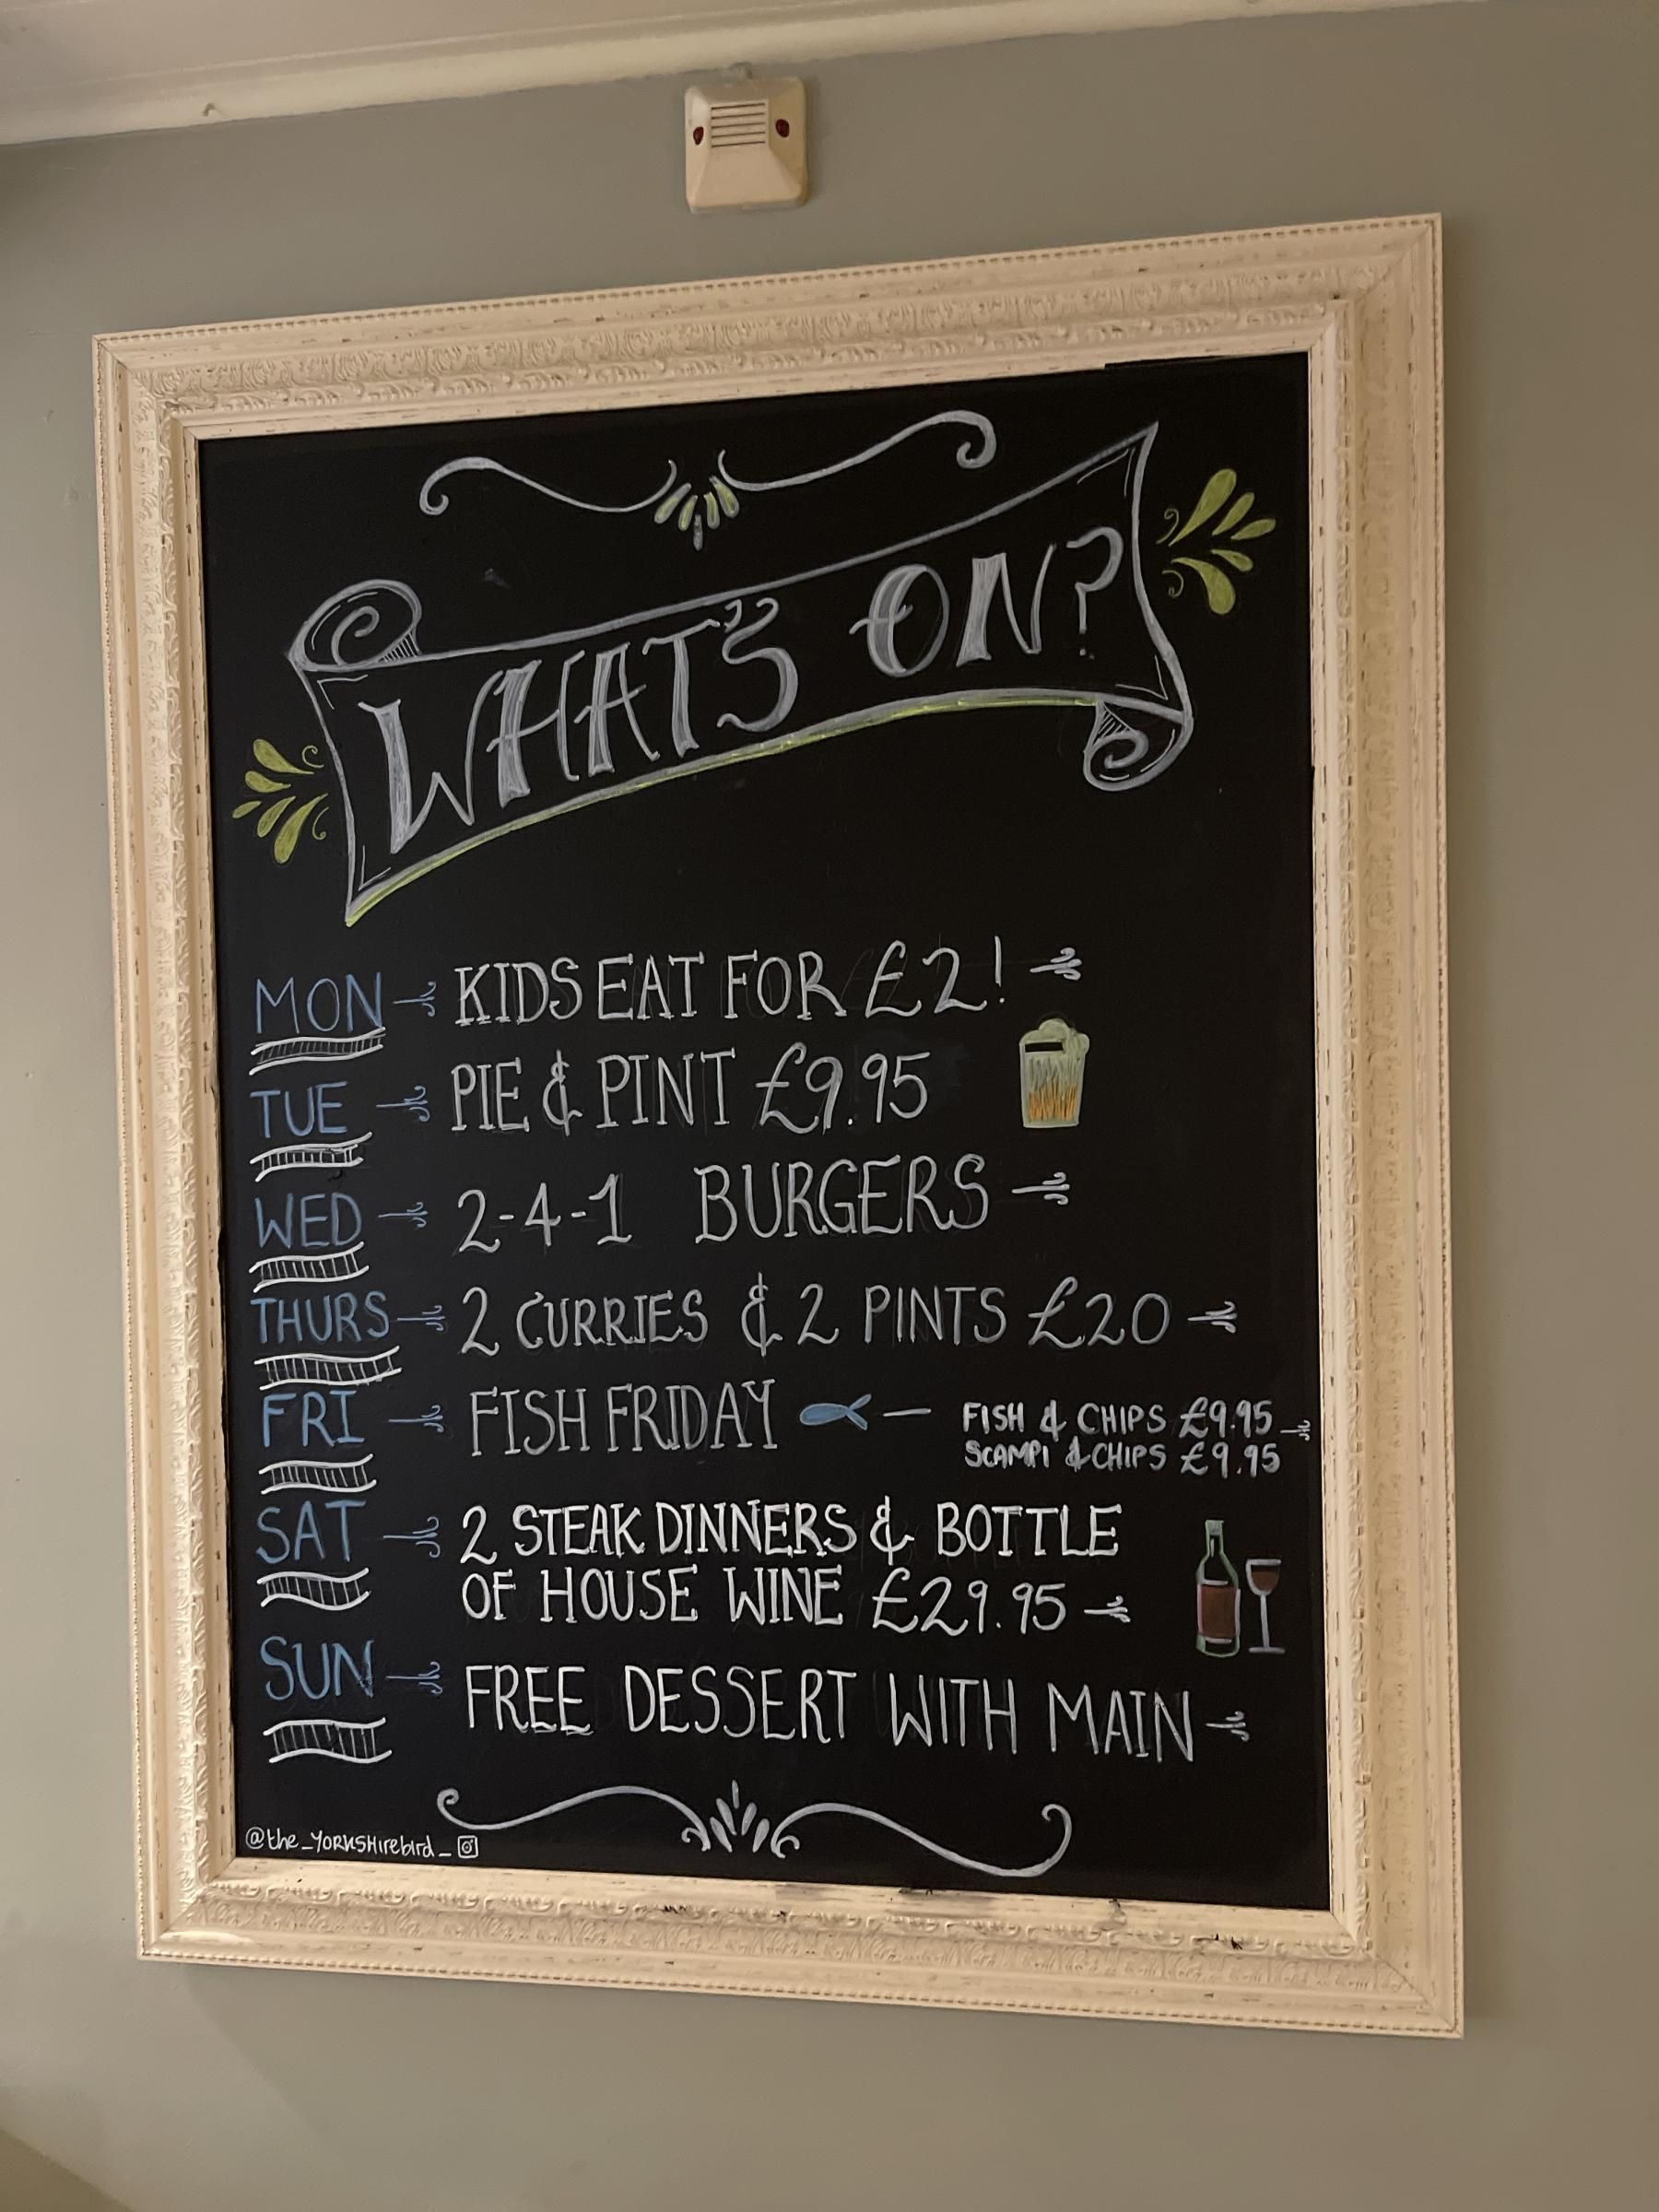 WHAT'S ON?
MON KIDS EAT FOR £2!
TUE PIE & PINT £9.95
WED 2-4-1 BURGERS
THURS 2 CURRIES & 2 PINTS £20
FRI FISH FRIDAY — FISH & CHIPS £9.95
SCAMPI & CHIPS £9.95
SAT 2 STEAK DINNERS & BOTTLE
OF HOUSE WINE £29.95
SUN FREE DESSERT WITH MAIN
@the_YORKSHIrebird_